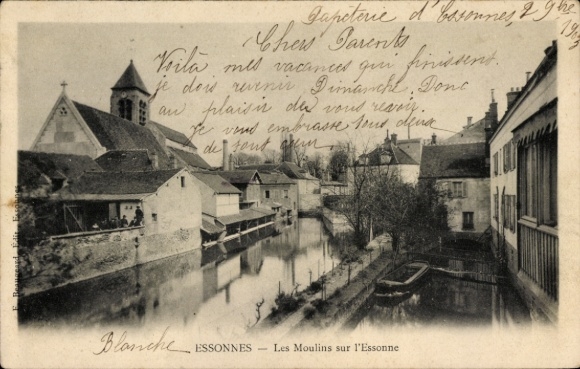 Papeterie d'Essonnes, 29 9bre
Chers Parents
Voilà mes vacances qui finissent
je dois revenir Dimanche. Donc
au plaisir de vous revoir.
Je vous embrasse tous deux
de tout cœur
Blanche
ESSONNES — Les Moulins sur l'Essonne
E. Beaugeard, Édit. Essonnes